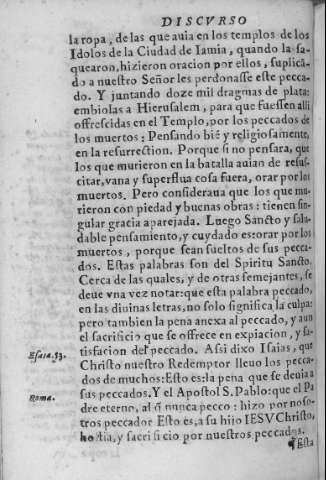 DISCVRSO
la ropa, de las que auia en los templos de los
Idolos de la Ciudad de Iamia, quando la sa-
quearon, hizieron oracion por ellos, suplicã-
do a nuestro Señor les perdonasse este pecca-
do. Y juntando doze mil dragmas de plata:
embiolas a Hierusalem, para que fuessen alli
offrescidas en el Templo, por los peccados de
los muertos: Pensando biẽ y religiosamente,
en la resurrection. Porque si no pensara, que
los que murieron en la batalla auian de resus-
citar, vana y superflua cosa fuera, orar por los
muertos. Pero consideraua que los que mu-
rieron con piedad y buenas obras: tienen sin-
gular gracia aparejada. Luego Sancto y salu-
dable pensamiento, y cuydado es: orar por los
muertos, porque sean sueltos de sus pecca-
dos. Estas palabras son del Spiritu Sancto.
Cerca de las quales, y de otras semejantes, se
deue vna vez notar: que esta palabra peccado,
en las diuinas letras, no solo significa la culpa:
pero tambien la pena anexa al peccado, y aun
el sacrificio que se offrece en expiacion, y sa-
tisfacion del peccado. Assi dixo Isaias, que
Esaia. 53.
Christo nuestro Redemptor lleuo los pecca-
dos de muchos: Esto es: la pena que se deuia a
Roma.
sus peccados. Y el Apostol S. Pablo: que el Pa
dre eterno, al q̃ nunca pecco: hizo por noso-
tros peccador Esto es, a su hijo IESV Christo,
hostia, y sacrificio por nuestros peccados.
¶ Esta